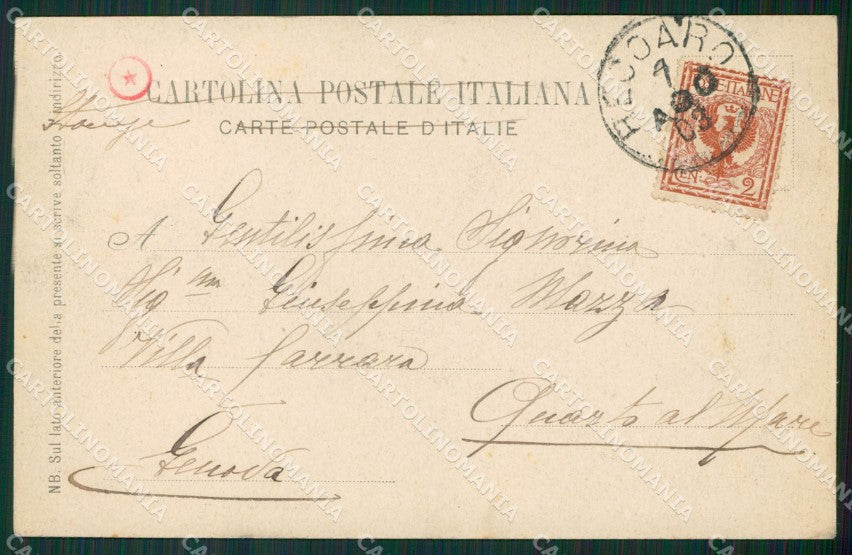 CARTOLINA POSTALE ITALIANA
CARTE POSTALE D'ITALIE
RECOARO
AGO
03
CEN: 2
A Gentilissima Signorina
Sig.na Giuseppina Mazza
Villa Carrara
Quarto al Mare
Genova
NB. Sul lato anteriore della presente si scrive soltanto l'indirizzo
CARTOLINOMANIA